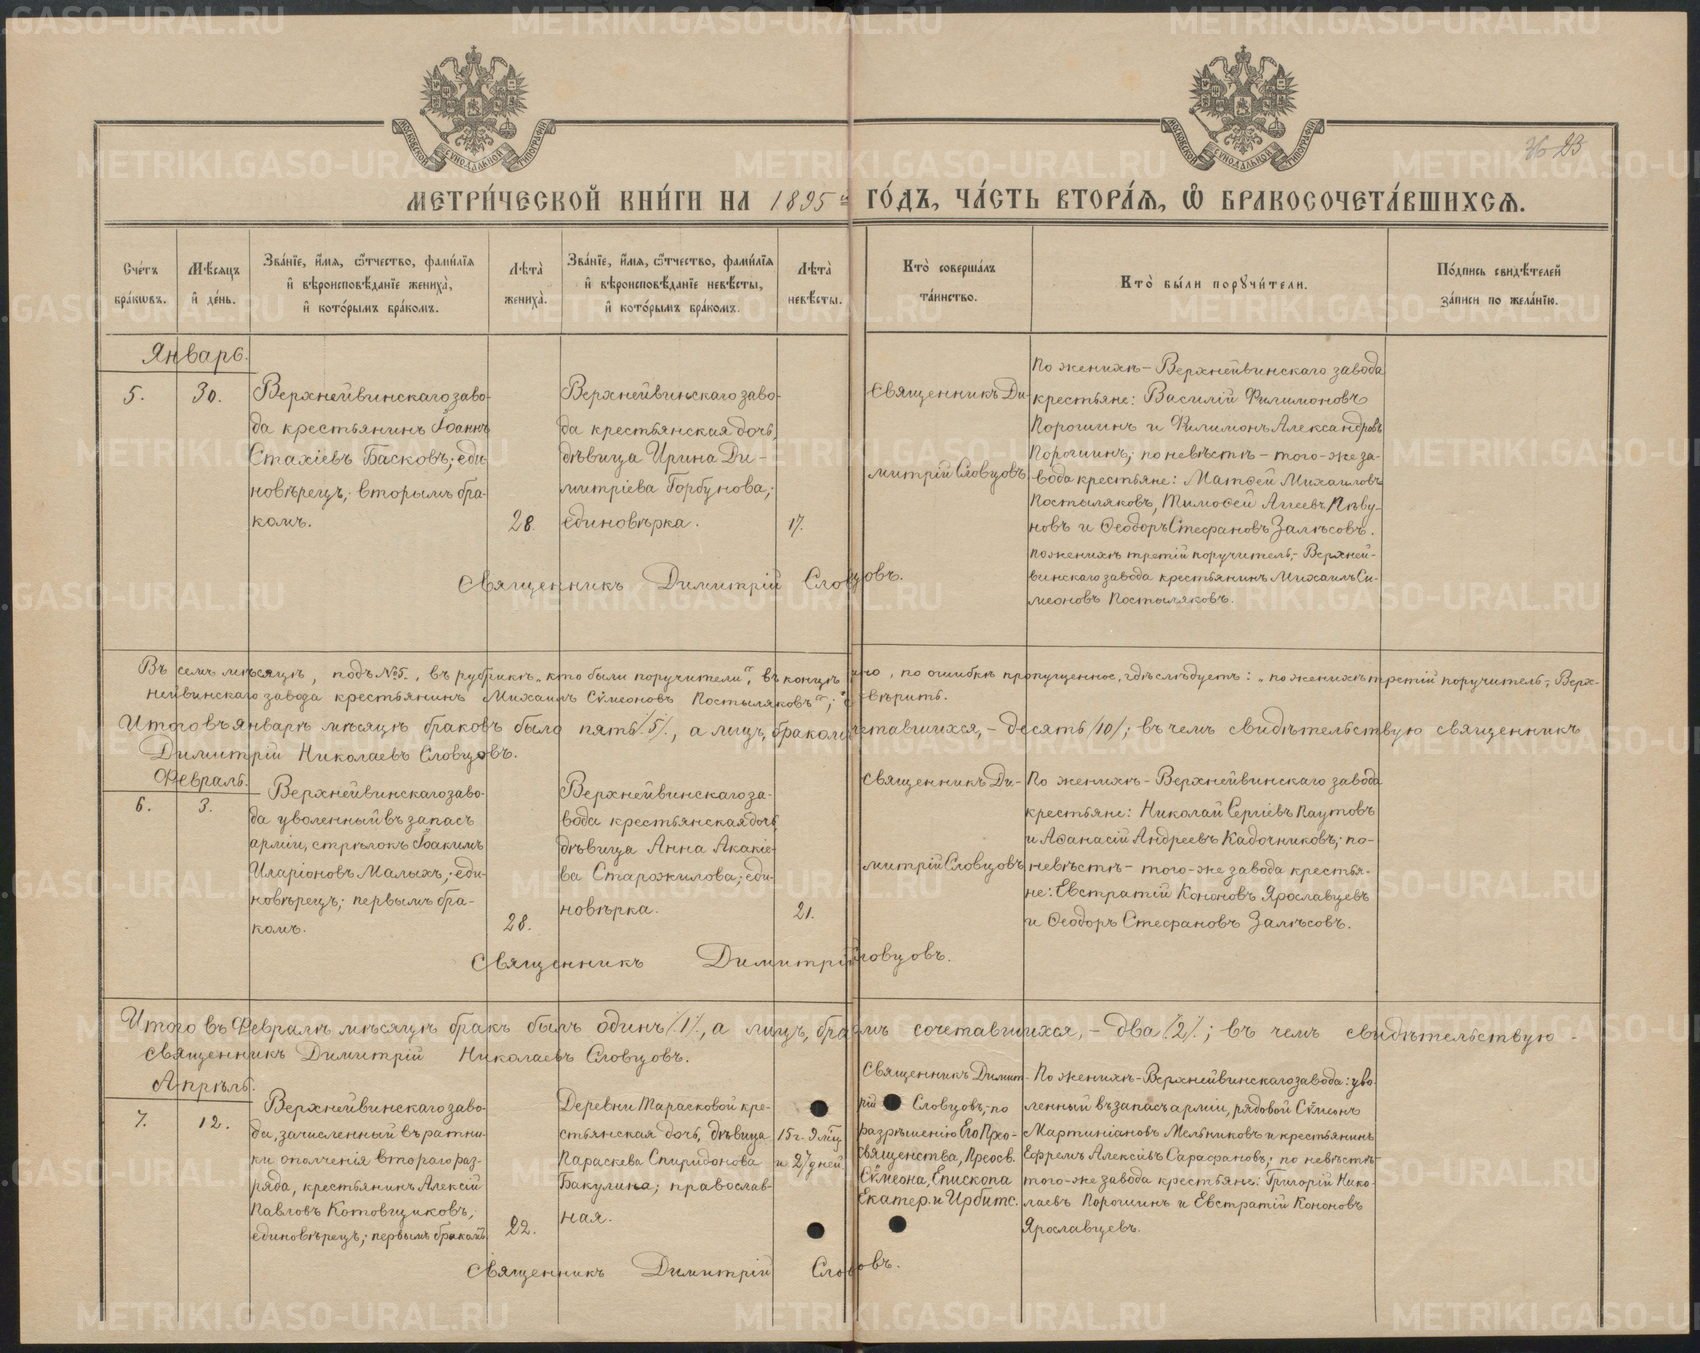 МЕТРИ́ЧЕСКОЙ КНИ́ГИ НА 1895й ГО́ДЪ, ЧА́СТЬ ВТОРА́Я, Ѡ БРАКОСОЧЕТА́ВШИХСЯ.
23
МОСКОВСКОЙ СѴНОДАЛЬНОЙ ТИПОГРАФІИ
МОСКОВСКОЙ СѴНОДАЛЬНОЙ ТИПОГРАФІИ
Сче́тъ
бра́кѡвъ.
Мѣ́сяцъ
и де́нь.
Зва́нїе, и́мя, ѻ́тчество, фами́лїя
и вѣроисповѣ́данїе жениха̀,
и кото́рымъ бра́комъ.
Лѣта̀
жениха̀.
Зва́нїе, и́мя, ѻ́тчество, фами́лїя
и вѣроисповѣ́данїе невѣ́сты,
и кото́рымъ бра́комъ.
Лѣта̀
невѣ́сты.
Кто̀ соверша́лъ
та́инство.
Кто̀ бы́ли порꙋчи́тели.
По́дпись свидѣ́телей
за́писи по жела́нїю.
Январь.
5.
30.
Верхнейвинскаго заво-
да крестьянинъ Іоаннъ
Стахіевъ Басковъ; еди-
новѣрецъ; вторымъ бра-
комъ.
28.
Верхнейвинскаго заво-
да крестьянская дочь,
дѣвица Ирина Ди-
митріева Горбунова;
единовѣрка.
17.
Священникъ Ди-
митрій Словцовъ
По женихѣ – Верхнейвинскаго завода
крестьяне: Василій Филимоновъ
Порошинъ и Филимонъ Александровъ
Порошинъ; по невѣстѣ – того-же за-
вода крестьяне: Матѳей Михаиловъ
Постыляковъ, Тимоѳей Аггеевъ Пѣву-
новъ и Ѳеодоръ Стефановъ Залѣсовъ.
по женихѣ третій поручитель,- Верхней-
винскаго завода крестьянинъ Михаилъ Си-
меоновъ Постыляковъ.
Священникъ Димитрій Словцовъ.
Въ семъ мѣсяцѣ, подъ №5., въ рубрикѣ „кто были поручители", въ концѣ , по ошибкѣ пропущенное, слѣдуетъ: „по женихѣ третій поручитель,- Верх-
нейвинскаго завода крестьянинъ Михаилъ Сѵмеоновъ Постыляковъ";
Итого въ январѣ мѣсяцѣ браковъ было пять/5/, а лицъ, бракомъ сочетавшихся, – десять/10/; въ чемъ свидѣтельствую священникъ
Димитрій Николаевъ Словцовъ.
Февраль.
6.
3.
Верхнейвинскаго заво-
да уволенный въ запасъ
арміи, стрѣлокъ Іоакимъ
Иларіоновъ Малыхъ; еди-
новѣрецъ; первымъ бра-
комъ.
28.
Верхнейвинскаго за-
вода крестьянская дочь,
дѣвица Анна Акакіе-
ва Старожилова; еди-
новѣрка.
21.
Священникъ Ди-
митрій Словцовъ
По женихѣ – Верхнейвинскаго завода
крестьяне: Николай Сергіевъ Паутовъ
и Аѳанасій Андреевъ Кадочниковъ; по-
невѣстѣ – того-же завода крестья-
не: Евстратій Кононовъ Ярославцевъ
и Ѳеодоръ Стефановъ Залѣсовъ.
Священникъ Димитрій Словцовъ.
Итого въ Февралѣ мѣсяцѣ бракъ былъ одинъ/1/, а лицъ, бракомъ сочетавшихся, – два/2/; въ чемъ свидѣтельствую -
священникъ Димитрій Николаевъ Словцовъ.
Апрѣль.
7.
12.
Верхнейвинскаго заво-
да, зачисленный въ ратни-
ки ополченія втораго раз-
ряда, крестьянинъ Алексій
Павловъ Котовщиковъ;
единовѣрецъ; первымъ бракомъ.
22.
Деревни Тарасковой кре-
стьянская дочь, дѣвица
Параскева Спиридонова
Бакулина; православ-
ная.
15 г. 9 мѣц.
и 27 дней
Священникъ Димит-
рій Словцовъ,-по
разрѣшенію Его Прео-
священства, Преосв.
Сѵмеона, Епископа
Екатер. и Ирбитс.
По женихѣ – Верхнейвинскаго завода: уво-
ленный въ запасъ арміи, рядовой Сѵмеонъ
Мартиніановъ Мельниковъ и крестьянинъ
Ефремъ Алексіевъ Сарафановъ; по невѣстѣ-
того-же завода крестьяне: Григорій Нико-
лаевъ Порошинъ и Евстратій Кононовъ
Ярославцевъ.
Священникъ Димитрій Словцовъ.
METRIKI.GASO-URAL.RU